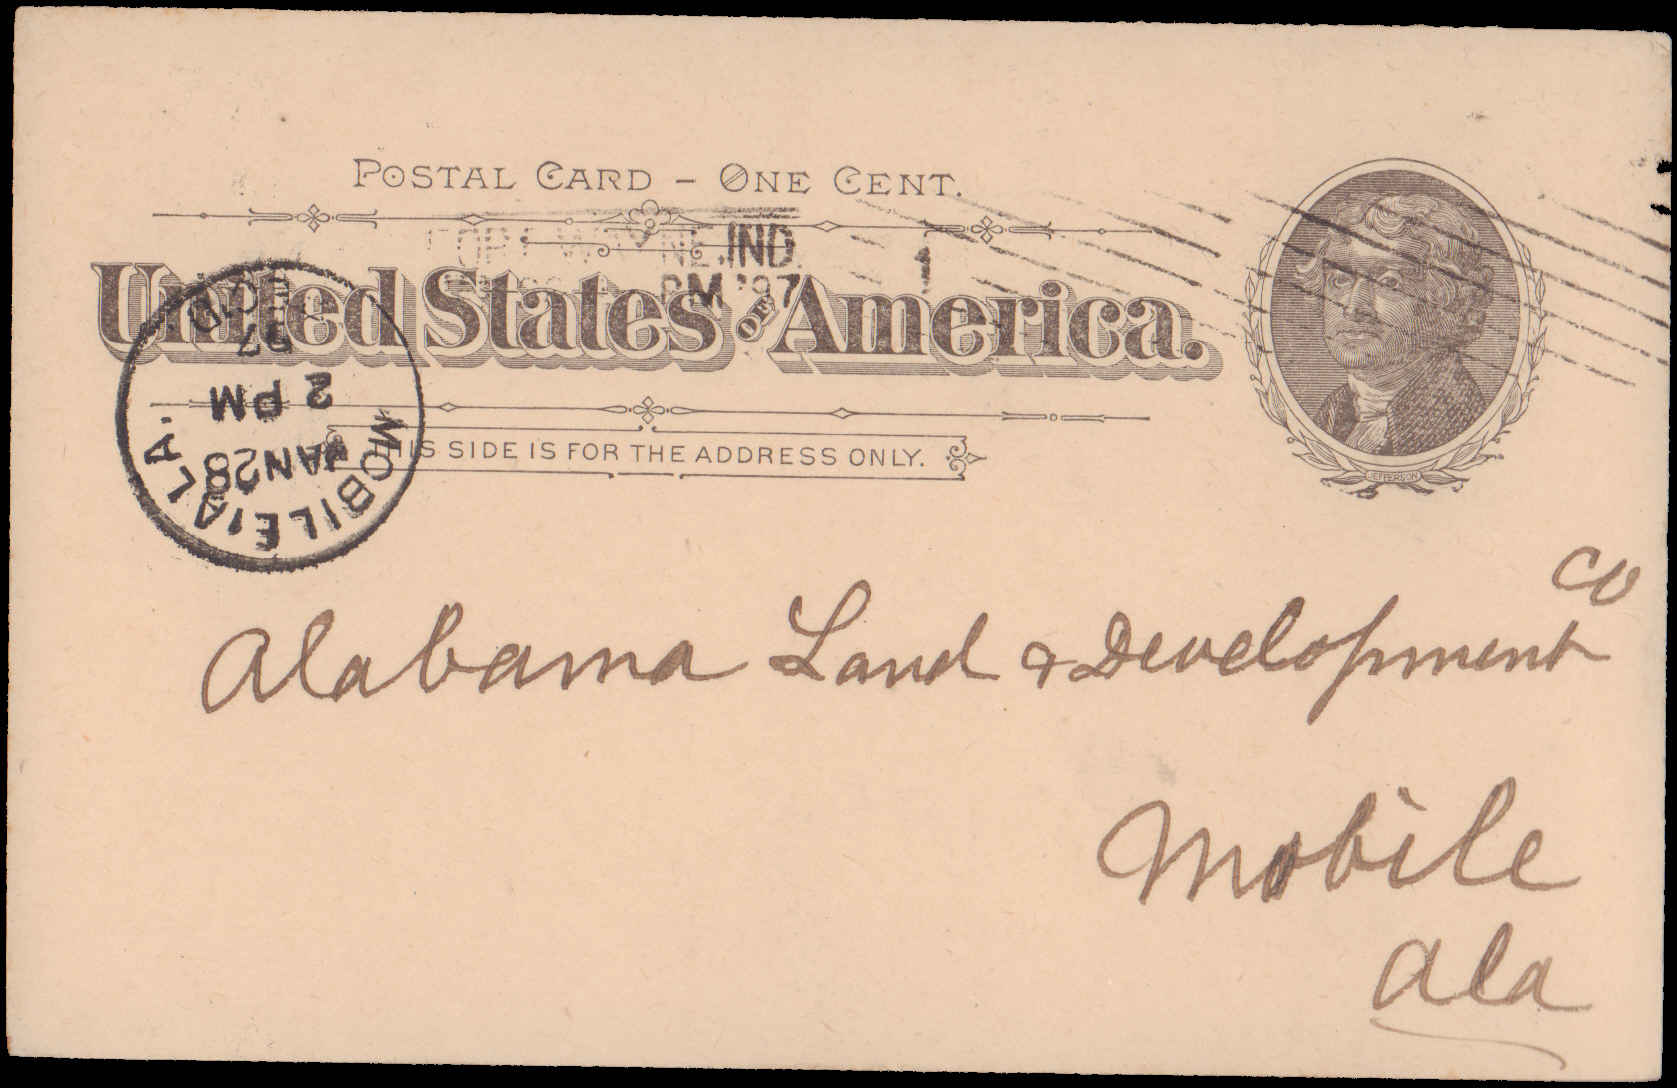 POSTAL CARD - ONE CENT.
FORT WAYNE, IND.
PM '97
1
United States OF America.
THIS SIDE IS FOR THE ADDRESS ONLY.
JEFFERSON
MOBILE, ALA.
JAN 28
2 PM
97
REC'D
Alabama Land & Development Co
Mobile
Ala